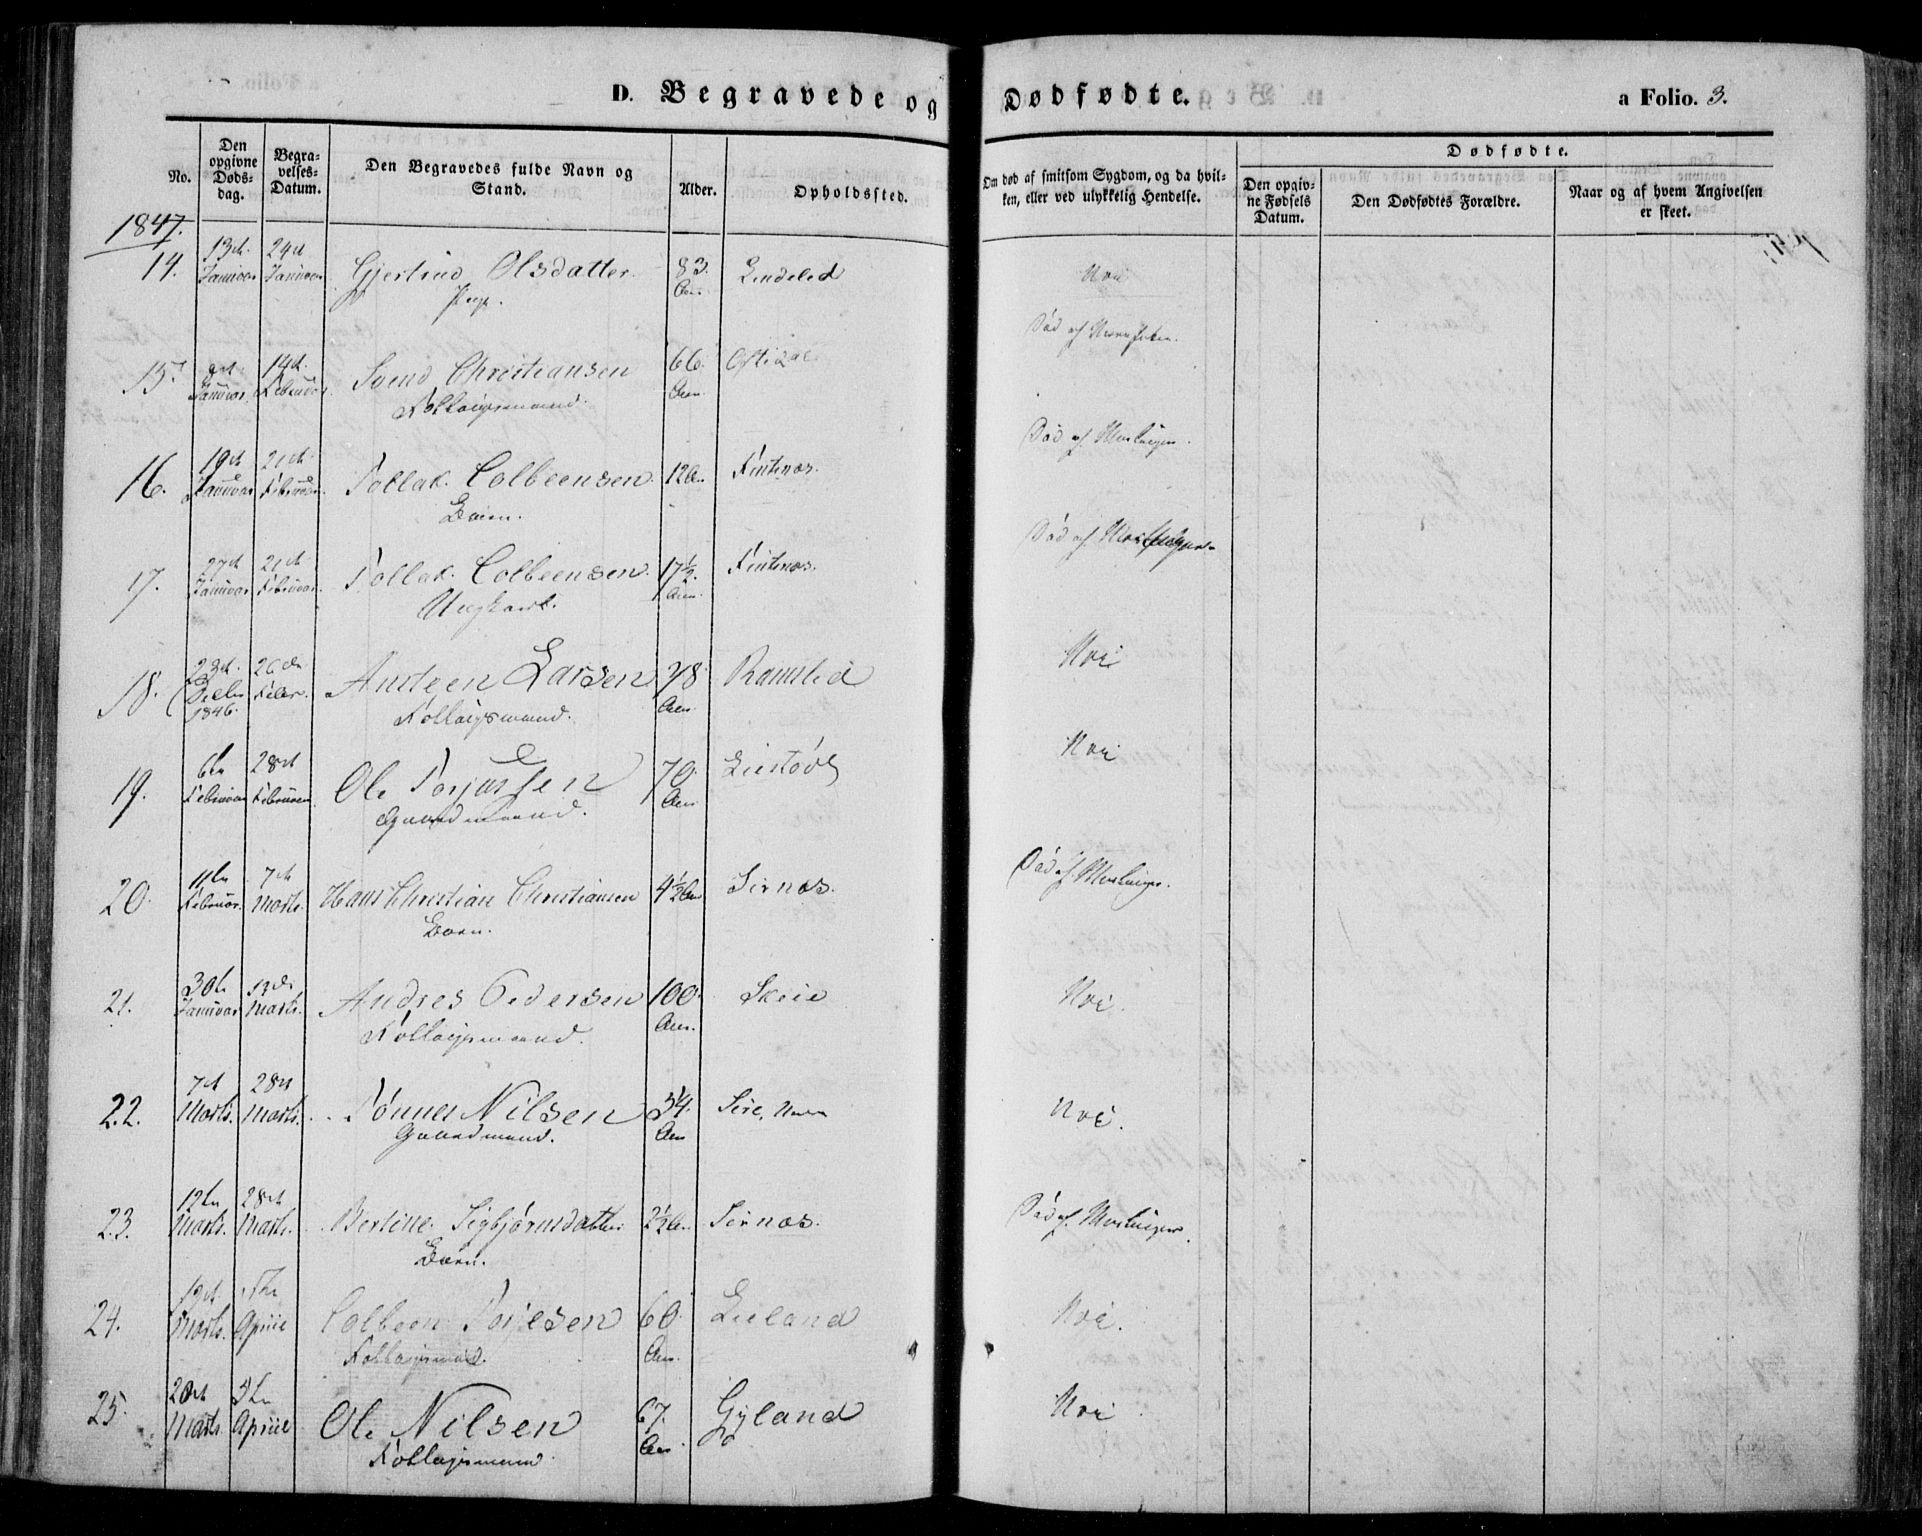 D. Begravede og Dødfødte. a Folio. 3.
No. Den opgivne Døds-dag. Begra-velses-Datum. Den Begravedes fulde Navn og Stand. Alder. Opholdssted. Om død af smitsom Sygdom, og da hvil-ken, eller ved ulykkelig Hendelse. Dødfødte. Den opgiv-ne Fødsels Datum. Den Dødfødtes Forældre. Naar og af hvem Angivelsen er skeet.
1847.
14. 13de Januar 24de Januar Gjertrud Olsdatter 83 Aar. Lindeled Nei
15. Januar 14de Februar Svend Christiansen 66 Aar. Død af
Follaugsmand.
16. 19de Januar 21de Februar. Tollak Colbeensen 12 Aar Fintnæs. Død af Meslinger.
Barn.
17. 27de Januar 21de Februar Tollak Colbeensen 17½ Aar. Fintnæs. Død af Meslinger.
Ungkarl.
18. 23de Decbr 1846. Febr. Austeen Larsen 78 Aar Ramsled Nei
Follaugsmand.
19. 6te Februar 28de Februar Ole Torjussen 70 Aar Nei
Gaardmand.
20. 11te Februar 7de Marts. Hans Christian Christiansen 4½ Aar Sirnæs. Død af Meslinger.
Barn.
21. 30te Januar Marts. Andres Pedersen 100 Aar. Skeie Nei.
Follaugsmand.
22. 7de Marts. 28de Marts. Tønnes Nilsen 34 Aar Nei.
Gaardmand.
23. 12te Marts. 28de Marts. Bertine Sigbjørnsdatter 2½ Aar Sirnæs. Død af Meslinger.
Barn.
24. Marts. April Colbeen Torjesen 60 Aar. Lieland Nei.
Follaugsmand.
25. 20de Marts. 5te April Ole Nilsen 67. Aar. Gyland Nei
Follaugsmand